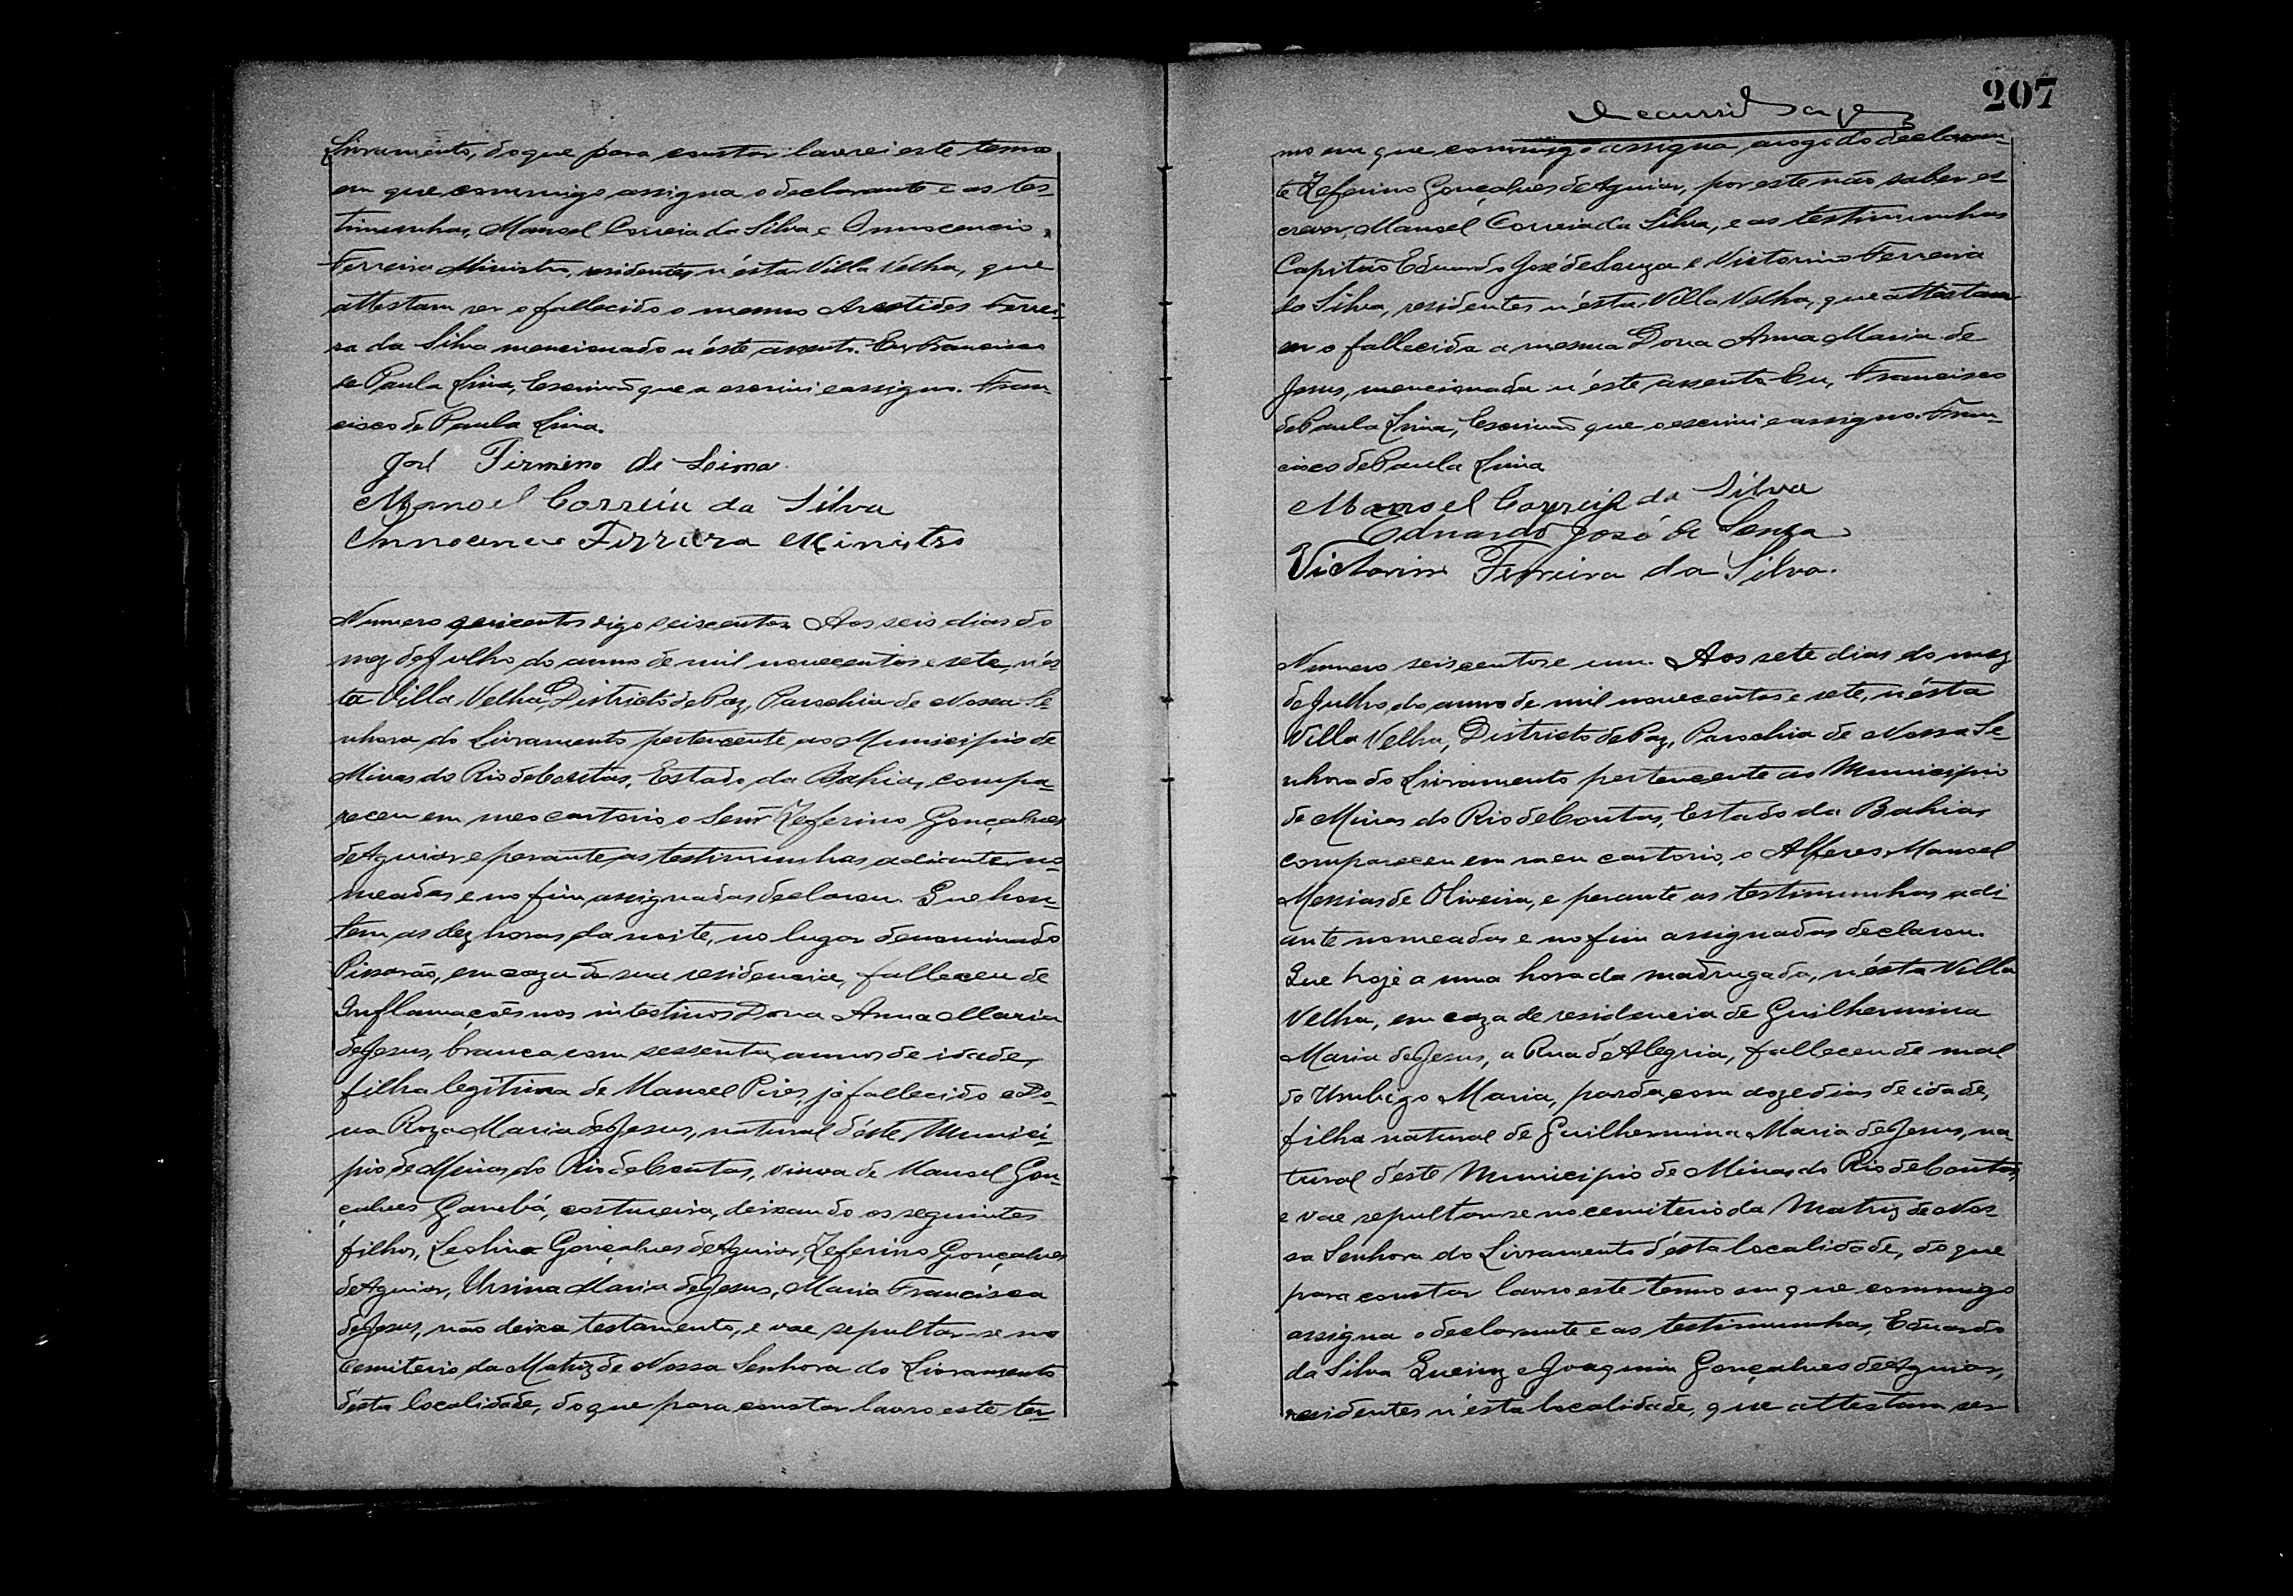 Livramento, do que para constar lavrei este termo
em que commigo assigna o declarante e as tes-
timunhas, Manoel Correia da Silva e Innocencio
Ferreira Ministro, residentes n'ésta Villa Velha, que
attestam ser o fallecido o mesmo Arestides Ferrei-
ra da Silva mencionado n'éste assento. Eu, Francisco
de Paula Lima, Escrivaõ que a escrivi e assigno. Fran-
cisco de Paula Lima.
José Firmino de Loima
Manoel Correia da Silva
Innocencio Ferreira Ministro
Numero quicentos digo seiscentos. Aos seis dias do
mez de Julho do anno de mil novecentos e sete, n'és-
ta Villa Velha, Districto de Paz, Parochia de Nossa Se-
nhora do Livramento pertencente ao Municipio de
Minas do Rio de Contas, Estado da Bahia, compa-
receu em meo cartorio o Senr Zeferino Gonçalves
de Aguiar e perante as testimunhas adiante no-
meadas e no fim assignadas declarou. Que hon-
tem as dez horas da noite, no lugar denominado
Pissarão, em caza de sua residencia, falleceu de
Inflamações nos intestinos Dona Anna Maria
de Jesus, branca com sessenta annos de idade,
filha legitima de Manoel Pires, já fallecido e Do-
na Roza Maria de Jesus, natural d'éste Munici-
pio de Minas do Rio de Contas, viuva de Manoel Gon-
çalves Gambá, costureira, deixando os seguintes
filhos, Leolina Gonçalves de Aguiar, Zeferino Gonçalves
de Aguiar, Ursina Maria de Jesus, Maria Francisca
de Jesus, não deixa testamento, e vae sepultar-se no
Cemiterio da Matriz de Nossa Senhora do Livramento
d'ésta localidade, do que para constar lavro este ter-
207
mo em que commigo assigna a rogo do declaran-
te Zeferino Gonçalves de Aguiar, por este não saber es-
crever, Manoel Correia da Silva, e as testimunhas
Capitão Eduardo José de Souza e Victorino Ferreira
da Silva, residentes n'ésta Villa Velha, que attestam
ser o fallecida a mesma Dona Anna Maria de
Jesus, mencionada n'éste assento. Eu, Francisco
de Paula Lima, Escrivaõ que o escrivi e assigno. Fran-
cisco de Paula Lima
Manoel Correia da Silva
Eduardo José de Souza
Victorino Ferreira da Silva.
Numero seiscentos e um. Aos sete dias do mez
de Julho do anno de mil novecentos e sete, n'ésta
Villa Velha, Districto de Paz, Parochia de Nossa Se-
nhora do Livramento pertencente ao Municipio
de Minas do Rio de Contas, Estado da Bahia,
compareceu em meu cartorio, o Alferes Manoel
Messias de Oliveira, e perante as testimunhas adi-
ante nomeadas e no fim assignadas declarou.
Que hoje a uma hora da madrugada, n'ésta Villa
Velha, em caza de residencia de Guilhermina
Maria de Jesus, a Rua d'Alegria, falleceu de mal
do Umbigo Maria, parda, com doze dias de idade,
filha natural de Guilhermina Maria de Jesus, na-
tural d'éste Municipio de Minas do Rio de Contas,
e vae sepultar-se no cemiterio da Matriz de Nos-
sa Senhora do Livramento d'ésta localidade, do que
para constar lavro este termo em que commigo
assigna o declarante e as testimunhas, Eduardo
da Silva Queiroz e Joaquim Gonçalves de Aguiar,
residentes n'ésta localidade, que attestam ser